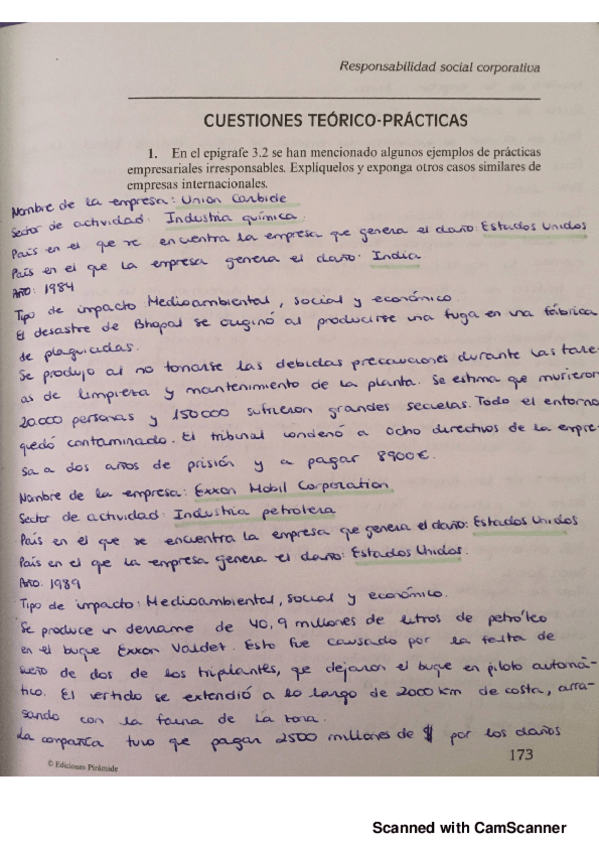 Responsabilidad social corporativa
CUESTIONES TEÓRICO-PRÁCTICAS
1. En el epígrafe 3.2 se han mencionado algunos ejemplos de prácticas
empresariales irresponsables. Explíquelos y exponga otros casos similares de
empresas internacionales.
Nombre de la empresa: Union Carbide
Sector de actividad: Industria química
País en el que se encuentra la empresa que genera el daño: Estados Unidos
País en el que la empresa genera el daño: India
Año: 1984
Tipo de impacto Medioambiental, social y económico.
El desastre de Bhopal se originó al producirse una fuga en una fábrica
de plaguicidas.
Se produjo al no tomarse las debidas precauciones durante las tare-
as de limpieza y mantenimiento de la planta. Se estima que murieron
20.000 personas y 150000 sufrieron grandes secuelas. Todo el entorno
quedó contaminado. El tribunal condenó a ocho directivos de la empre-
sa a dos años de prisión y a pagar 8900€.
Nombre de la empresa: Exxon Mobil Corporation
Sector de actividad: Industria petrolera
País en el que se encuentra la empresa que genera el daño: Estados Unidos
País en el que la empresa genera el daño: Estados Unidos.
Año: 1989
Tipo de impacto: Medioambiental, social y económico.
Se produce un derrame de 40,9 millones de litros de petróleo
en el buque Exxon Valdet. Esto fue causado por la falta de
sueño de dos de los tripulantes, que dejaron el buque en piloto automá-
tico. El vertido se extendió a lo largo de 2000 km de costa, arra-
sando con la fauna de la zona.
La compañía tuvo que pagar 2500 millones de $ por los daños
173
© Ediciones Pirámide
Scanned with CamScanner